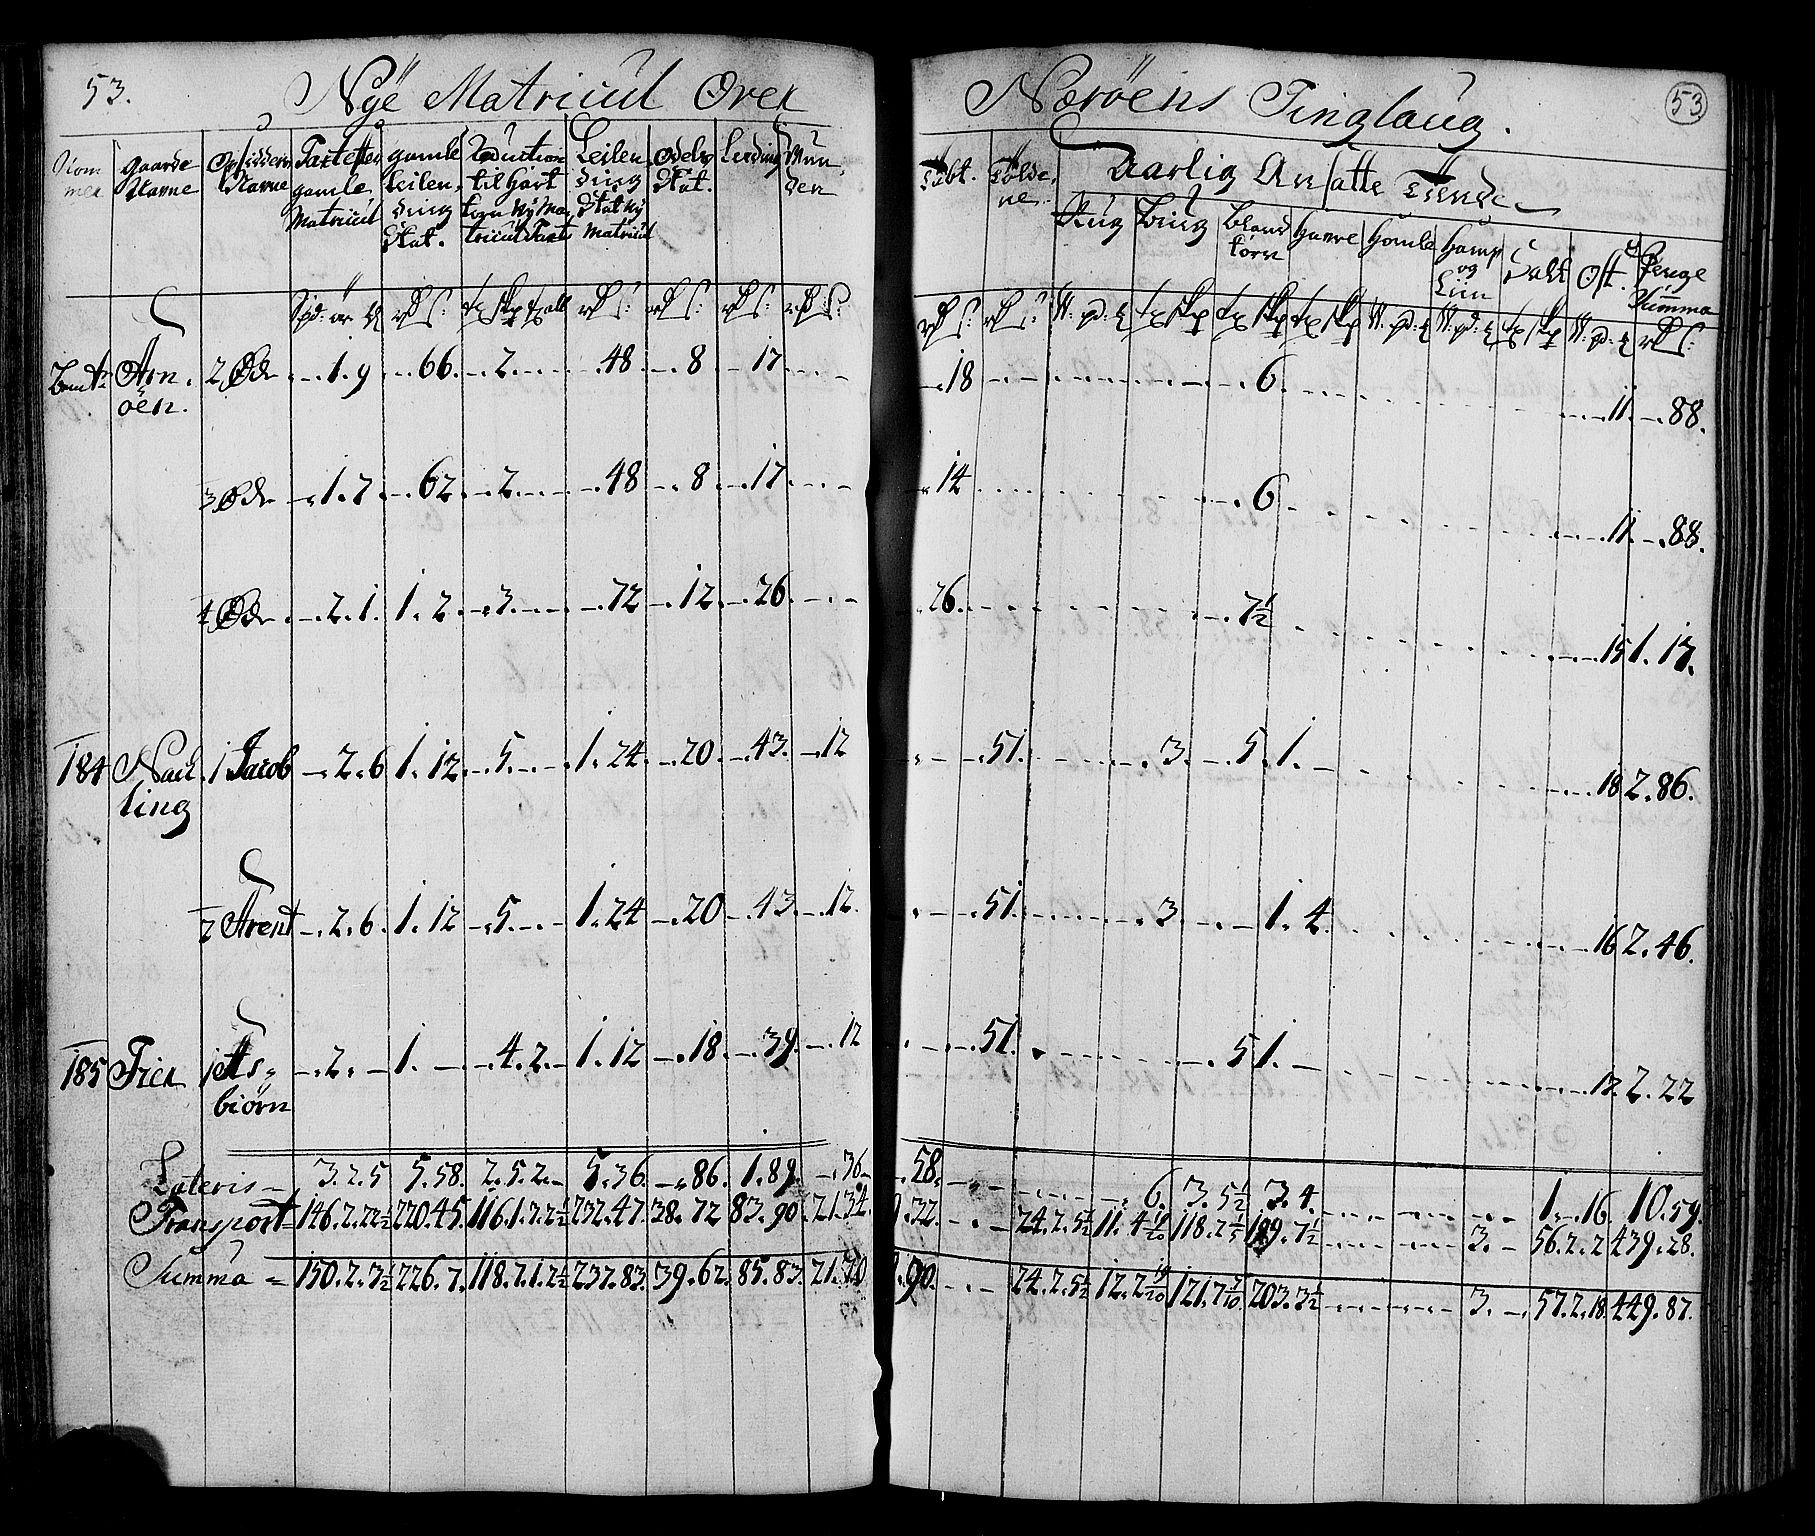 53. Nÿe Matricul Over Nærøens Tinglaug. 53
Nom mer | Gaarde Navne | Opsiddern Navne | Taxt efter gamle Matricul | gamle Leilen, ding Skat. | Reduction til hart korn Nÿ Ma, tricul Taxt | Leilen, ding Skat Nÿ Matricul | Odels Skat. | Leding | Mun, den | Told, ne | Aarlig Ansatte Tiende
Rug | Biug | Bland korn | Havre | Homle | Hamp og Liin | Salt | Ost. | Penge Summa
Arn, øen. 2 Øde -.1.9 -.66. -.2.-- -.48 -.8 -.17 --- -.18 ---- -.6. ---- -.11. -.88.
3 Øde -.1.7. -.62. -.2.--- -.48 -.8 -.17.--- -.14 ---- -.6.- ---- -.11. -.88.
4 Øde -.2.1. 1.2. -.3.--- -.72 -.12. -.26.--- .26. ---- -.7½ ---- -.15 1.17.
184 Nach ling 1 Jacob -.2.6 1.12. -.5.-- 1.24. -.20 -.43. -.12 -.-.51. ---.3. -.5. 1.- ---- -.18 2.86.
2 Arent -.2.6. 1.12 -.5.-- 1.24 -.20 -.43. -.12. -.-.51. ---.3. -.- 1.4. ---- -.16 2.46.
185 Frier 1 As, biørn -.2.- 1.- -.4.2.- 1.12 -.18. -.39. -.12 -.-.51. ---- -.5 1.- ---- -.13. 2.22
Lateris - 3.2.5 5.58. 2.5.2.- 5.36. -.86. 1.89. -.36 .58. --- ---- -.6. 3.5½ 3.4. ---- 1.-.16. 10.59.
Transport = 146.2.22½ 220.45. 116.1.7.2½ 232.47. 38.72 83.90. 21.34. .32. -.- 24.2.5½ 11.4 118.2 199.7½ ---- 3.- 56.2.2 439.28.
Summa = 150.2.3½ 226.7. 118.7.1.2½ 237.83. 39.62. 85.83. 21.70 .90. -.- 24.2.5½ 12.2 19/20 121.7 7/10 203.3½ ---- 3.- 57.2.18. 449.87.